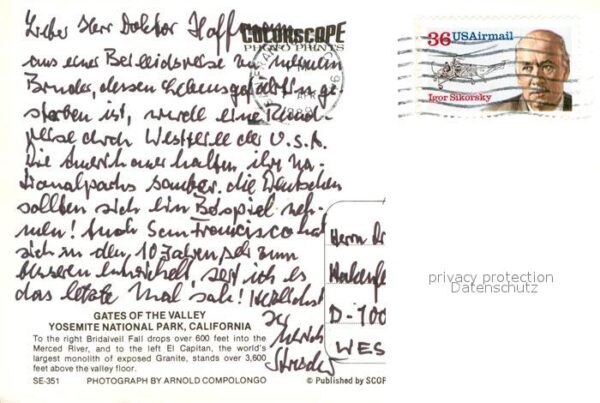 Lieber Herr Doktor Hoffmann
COLORSCOPE
PHOTO PRINTS
36 USAirmail
Igor Sikorsky
aus einer Beileidsreise zu meinem
Bruder, dessen Lebensgefährtin ge-
storben ist, wurde eine Rund-
reise durch Westteile der U.S.A.
Die Amerikaner halten ihre Na-
tionalparks sauber. die Deutschen
sollten sich ein Beispiel neh-
men! Auch San Francisco hat
sich in den 10 Jahren sehr zum
besseren entwickelt, seit ich es
das letzte Mal sah! Herzlichst
Ihr
Ulrich
Herrn Dr
D-100
WES
privacy protection
Datenschutz
GATES OF THE VALLEY
YOSEMITE NATIONAL PARK, CALIFORNIA
To the right Bridalveil Fall drops over 600 feet into the
Merced River, and to the left El Capitan, the world's
largest monolith of exposed Granite, stands over 3,600
feet above the valley floor.
SE-351 PHOTOGRAPH BY ARNOLD COMPOLONGO
© Published by SCOF